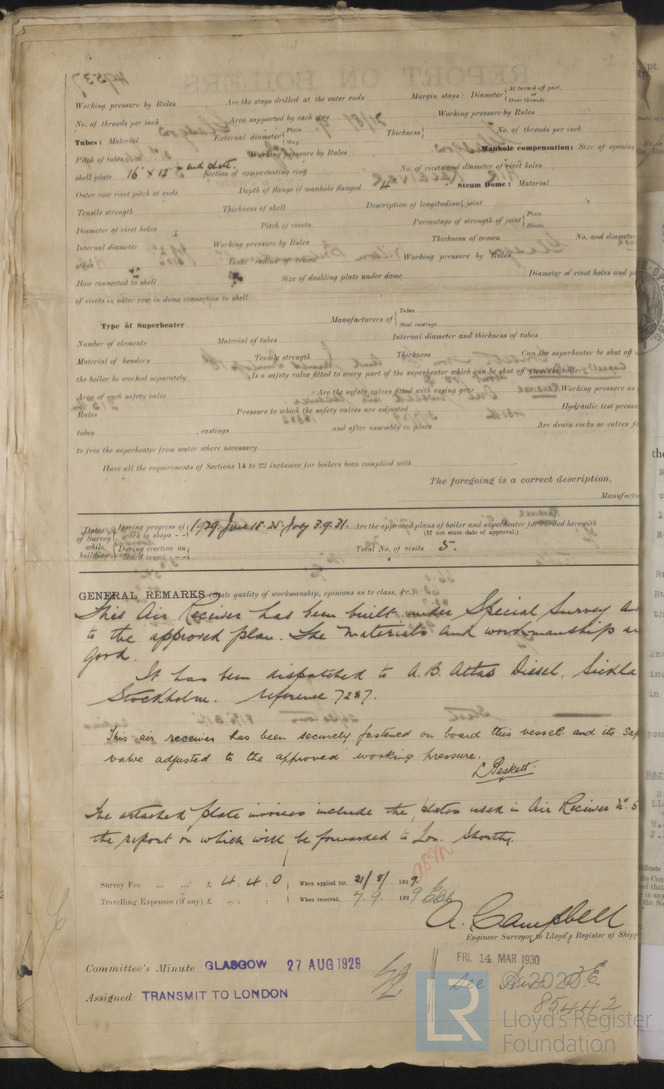 Working pressure by Rules Are the stays drilled at the outer ends Margin stays: Diameter At turned off part, or Over threads
No. of threads per inch Area supported by each stay Working pressure by Rules
Tubes: Material External diameter Plain Stay Thickness No. of threads per inch
Pitch of tubes Working pressure by Rules Manhole compensation: Size of opening
shell plate 16" x 12" in end plate. Section of compensating ring No. of rivets and diameter of rivet holes
Outer row rivet pitch at ends Depth of flange if manhole flanged 4" Steam Dome: Material
Tensile strength Thickness of shell Description of longitudinal joint
Diameter of rivet holes Pitch of rivets Percentage of strength of joint Plate Rivets
Internal diameter Working pressure by Rules Thickness of crown No. and diameter
stays Working pressure by Rules
How connected to shell Size of doubling plate under dome Diameter of rivet holes and p
of rivets in outer row in dome connection to shell
Type of Superheater Manufacturers of Tubes Steel castings
Number of elements Material of tubes Internal diameter and thickness of tubes
Material of headers Tensile strength Thickness Can the superheater be shut off
the boiler be worked separately Is a safety valve fitted to every part of the superheater which can be shut off from the boiler
Area of each safety valve Are the safety valves fitted with easing gear Working pressure as
Rules Pressure to which the safety valves are adjusted Hydraulic test pressure
tubes , castings and after assembly in place Are drain cocks or valves fi
to free the superheater from water where necessary
Have all the requirements of Sections 14 to 22 inclusive for boilers been complied with
The foregoing is a correct description,
Manufactu
Dates of Survey while building During progress of work in shops - - 1929. June 18. 25. July 3. 9. 31. Are the approved plans of boiler and superheater forwarded herewith
(If not state date of approval.)
During erection on board vessel - - - Total No. of visits 5.
GENERAL REMARKS (State quality of workmanship, opinions as to class, &c.)
This Air Receiver has been built under Special Survey a
to the approved plan. The materials and workmanship ar
good.
It has been dispatched to A.B. Atlas Diesel, Sickla
Stockholm. reference 7287.
This air receiver has been securely fastened on board this vessel and its saf
valve adjusted to the approved working pressure.
The attached plate invoices include the plates used in Air Receiver No. 5
the report on which will be forwarded to Lon. shortly.
Survey Fee ... ... £ 4. 4. 0 When applied for, 21/8/ 1929.
Travelling Expenses (if any) £ When received, 7.9. 1929
A. Campbell
Engineer Surveyor to Lloyd's Register of Shipp
Committee's Minute GLASGOW 27 AUG 1929 FRI. 14 MAR 1930
Assigned TRANSMIT TO LONDON See
85442
LR © 2020
Lloyd's Register
Foundation